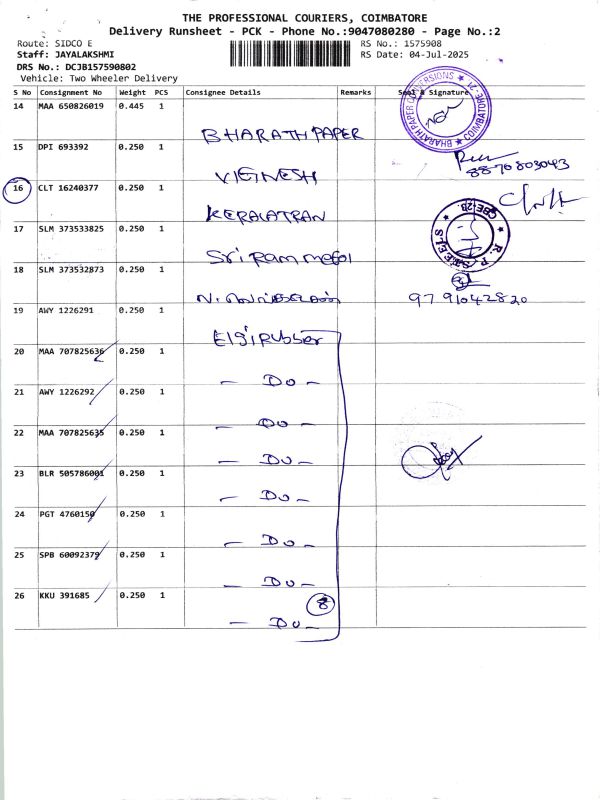 THE PROFESSIONAL COURIERS, COIMBATORE
Delivery Runsheet - PCK - Phone No.:9047080280 - Page No.:2
Route: SIDCO E
Staff: JAYALAKSHMI
DRS No.: DCJB157590802
Vehicle: Two Wheeler Delivery
RS No.: 1575908
RS Date: 04-Jul-2025
S No Consignment No Weight PCS Consignee Details Remarks Seal & Signature
14 MAA 650826019 0.445 1 BHARATH PAPER
BHARATH PAPER CONVERSIONS ★ COIMBATORE-21 ★
15 DPI 693392 0.250 1 VIGNESH
8870803043
16 CLT 16240377 0.250 1 KERALATRAN
17 SLM 373533825 0.250 1 Sri Ram metal
R.P. STEELS ★ CBE-21 ★
18 SLM 373532873 0.250 1 N.
9791042820
19 AWY 1226291 0.250 1 Elgi Rubber
20 MAA 707825636 0.250 1 - Do -
21 AWY 1226292 0.250 1 - Do -
22 MAA 707825635 0.250 1 - Do -
23 BLR 505786001 0.250 1 - Do -
24 PGT 4760150 0.250 1 - Do -
25 SPB 60092379 0.250 1 - Do -
26 KKU 391685 0.250 1 - Do -
8